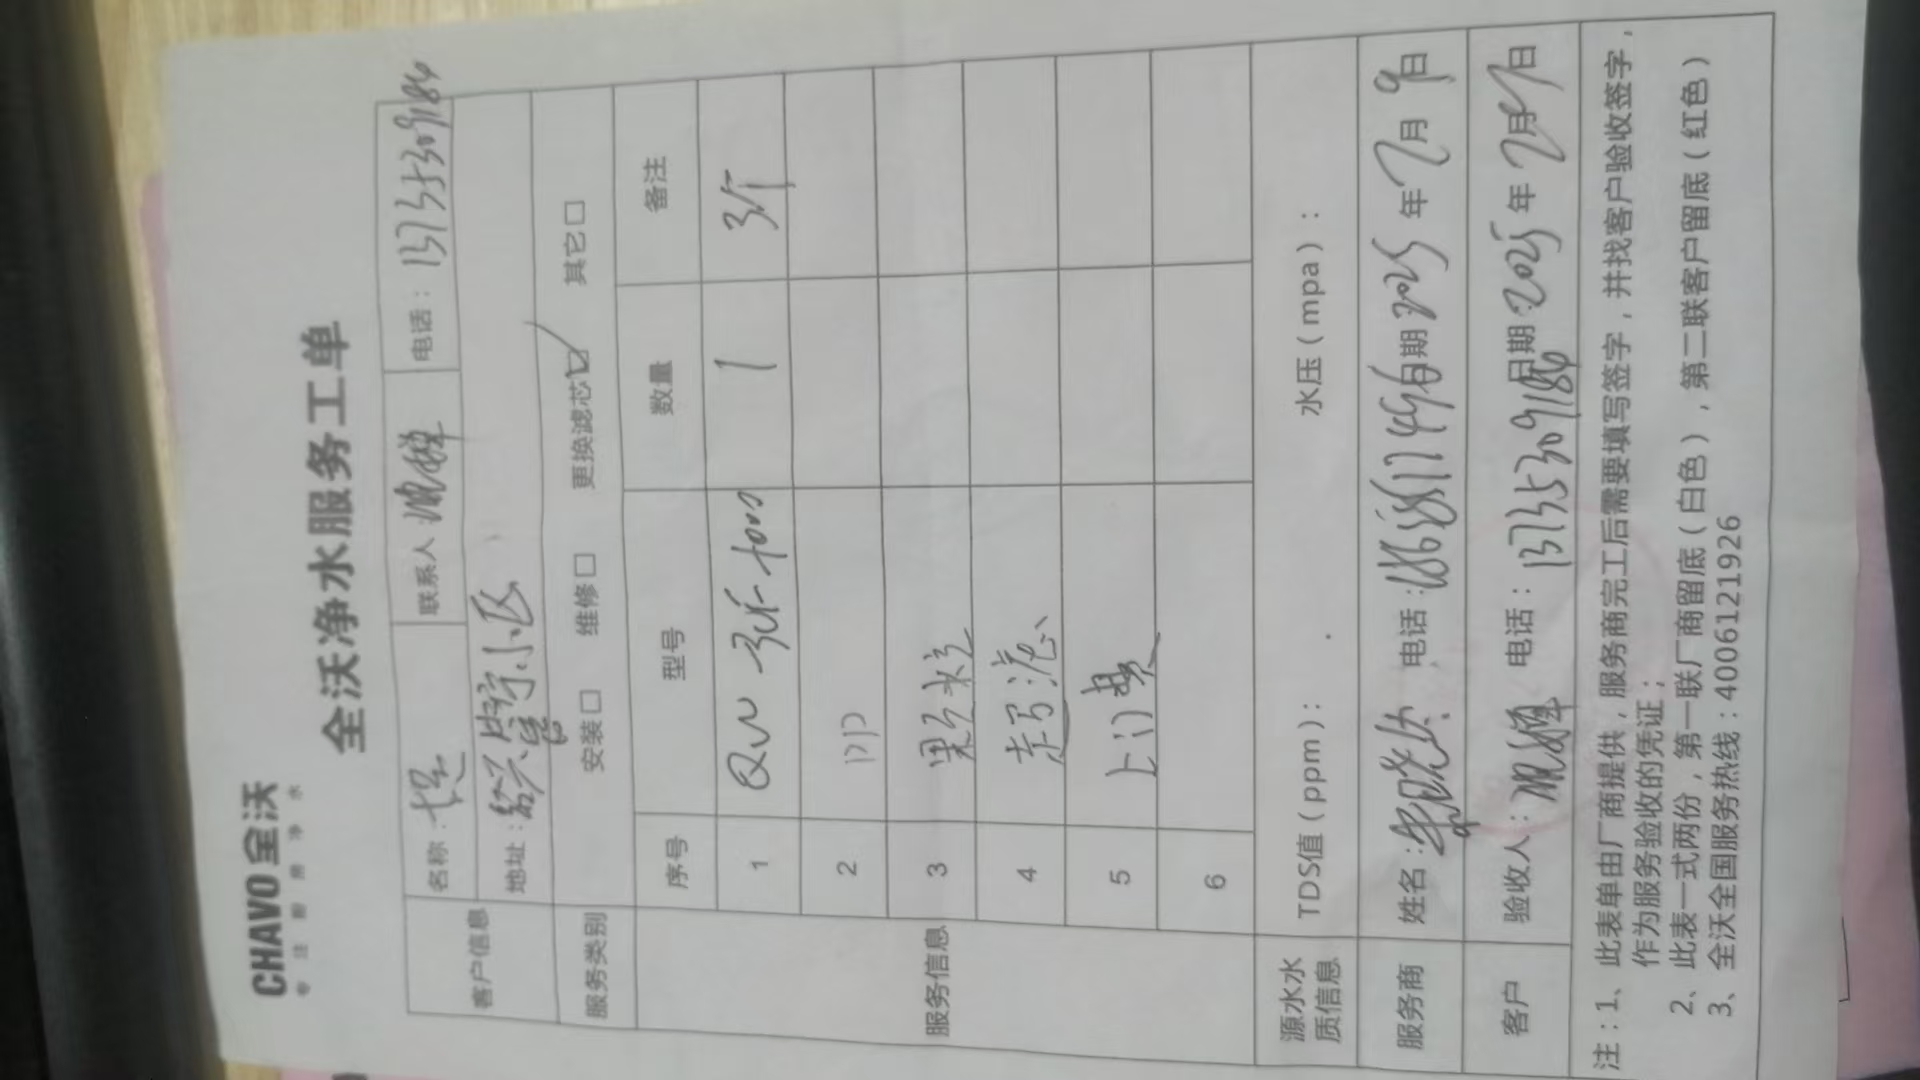 CHAVO 全沃
专注厨房净水
全沃净水服务工单
客户信息 名称: 联系人: 电话:13735309186
地址: 小区
服务类别 安装□ 维修□ 更换滤芯☑ 其它□
服务信息
序号 型号 数量 备注
1 1
2
3 果粒
4
5 上门费
6
源水水质信息 TDS值(ppm): 水压(mpa):
服务商 姓名: 电话: 日期:2025年7月9日
客户 验收人: 电话:13735309186 日期:2025年7月9日
注:1、此表单由厂商提供,服务商完工后需要填写签字,并找客户验收签字,
作为服务验收的凭证;
2、此表一式两份,第一联厂商留底(白色),第二联客户留底(红色)
3、全沃全国服务热线:4006121926